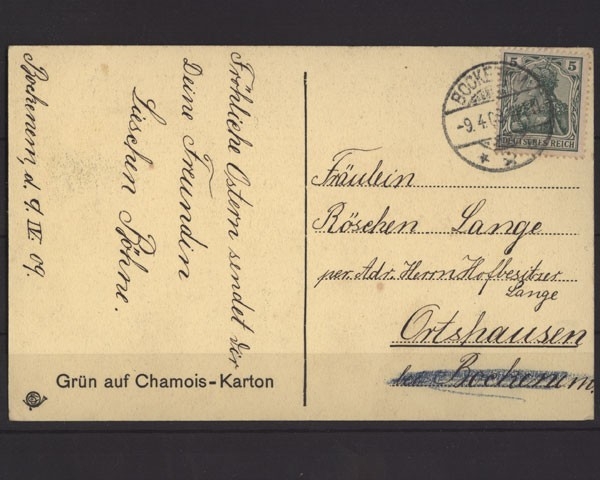 Bockenem, d. 9. IV. 09.
Fröhliche Ostern sendet dir
Deine Freundin
Lieschen Höhne.
Grün auf Chamois-Karton
5 5
DEUTSCHES REICH
BOCKENEM
-9.4.09
Fräulein
Röschen Lange
per. Adr. Herrn Hofbesitzer
Lange
Ortshausen
bei Bockenem.